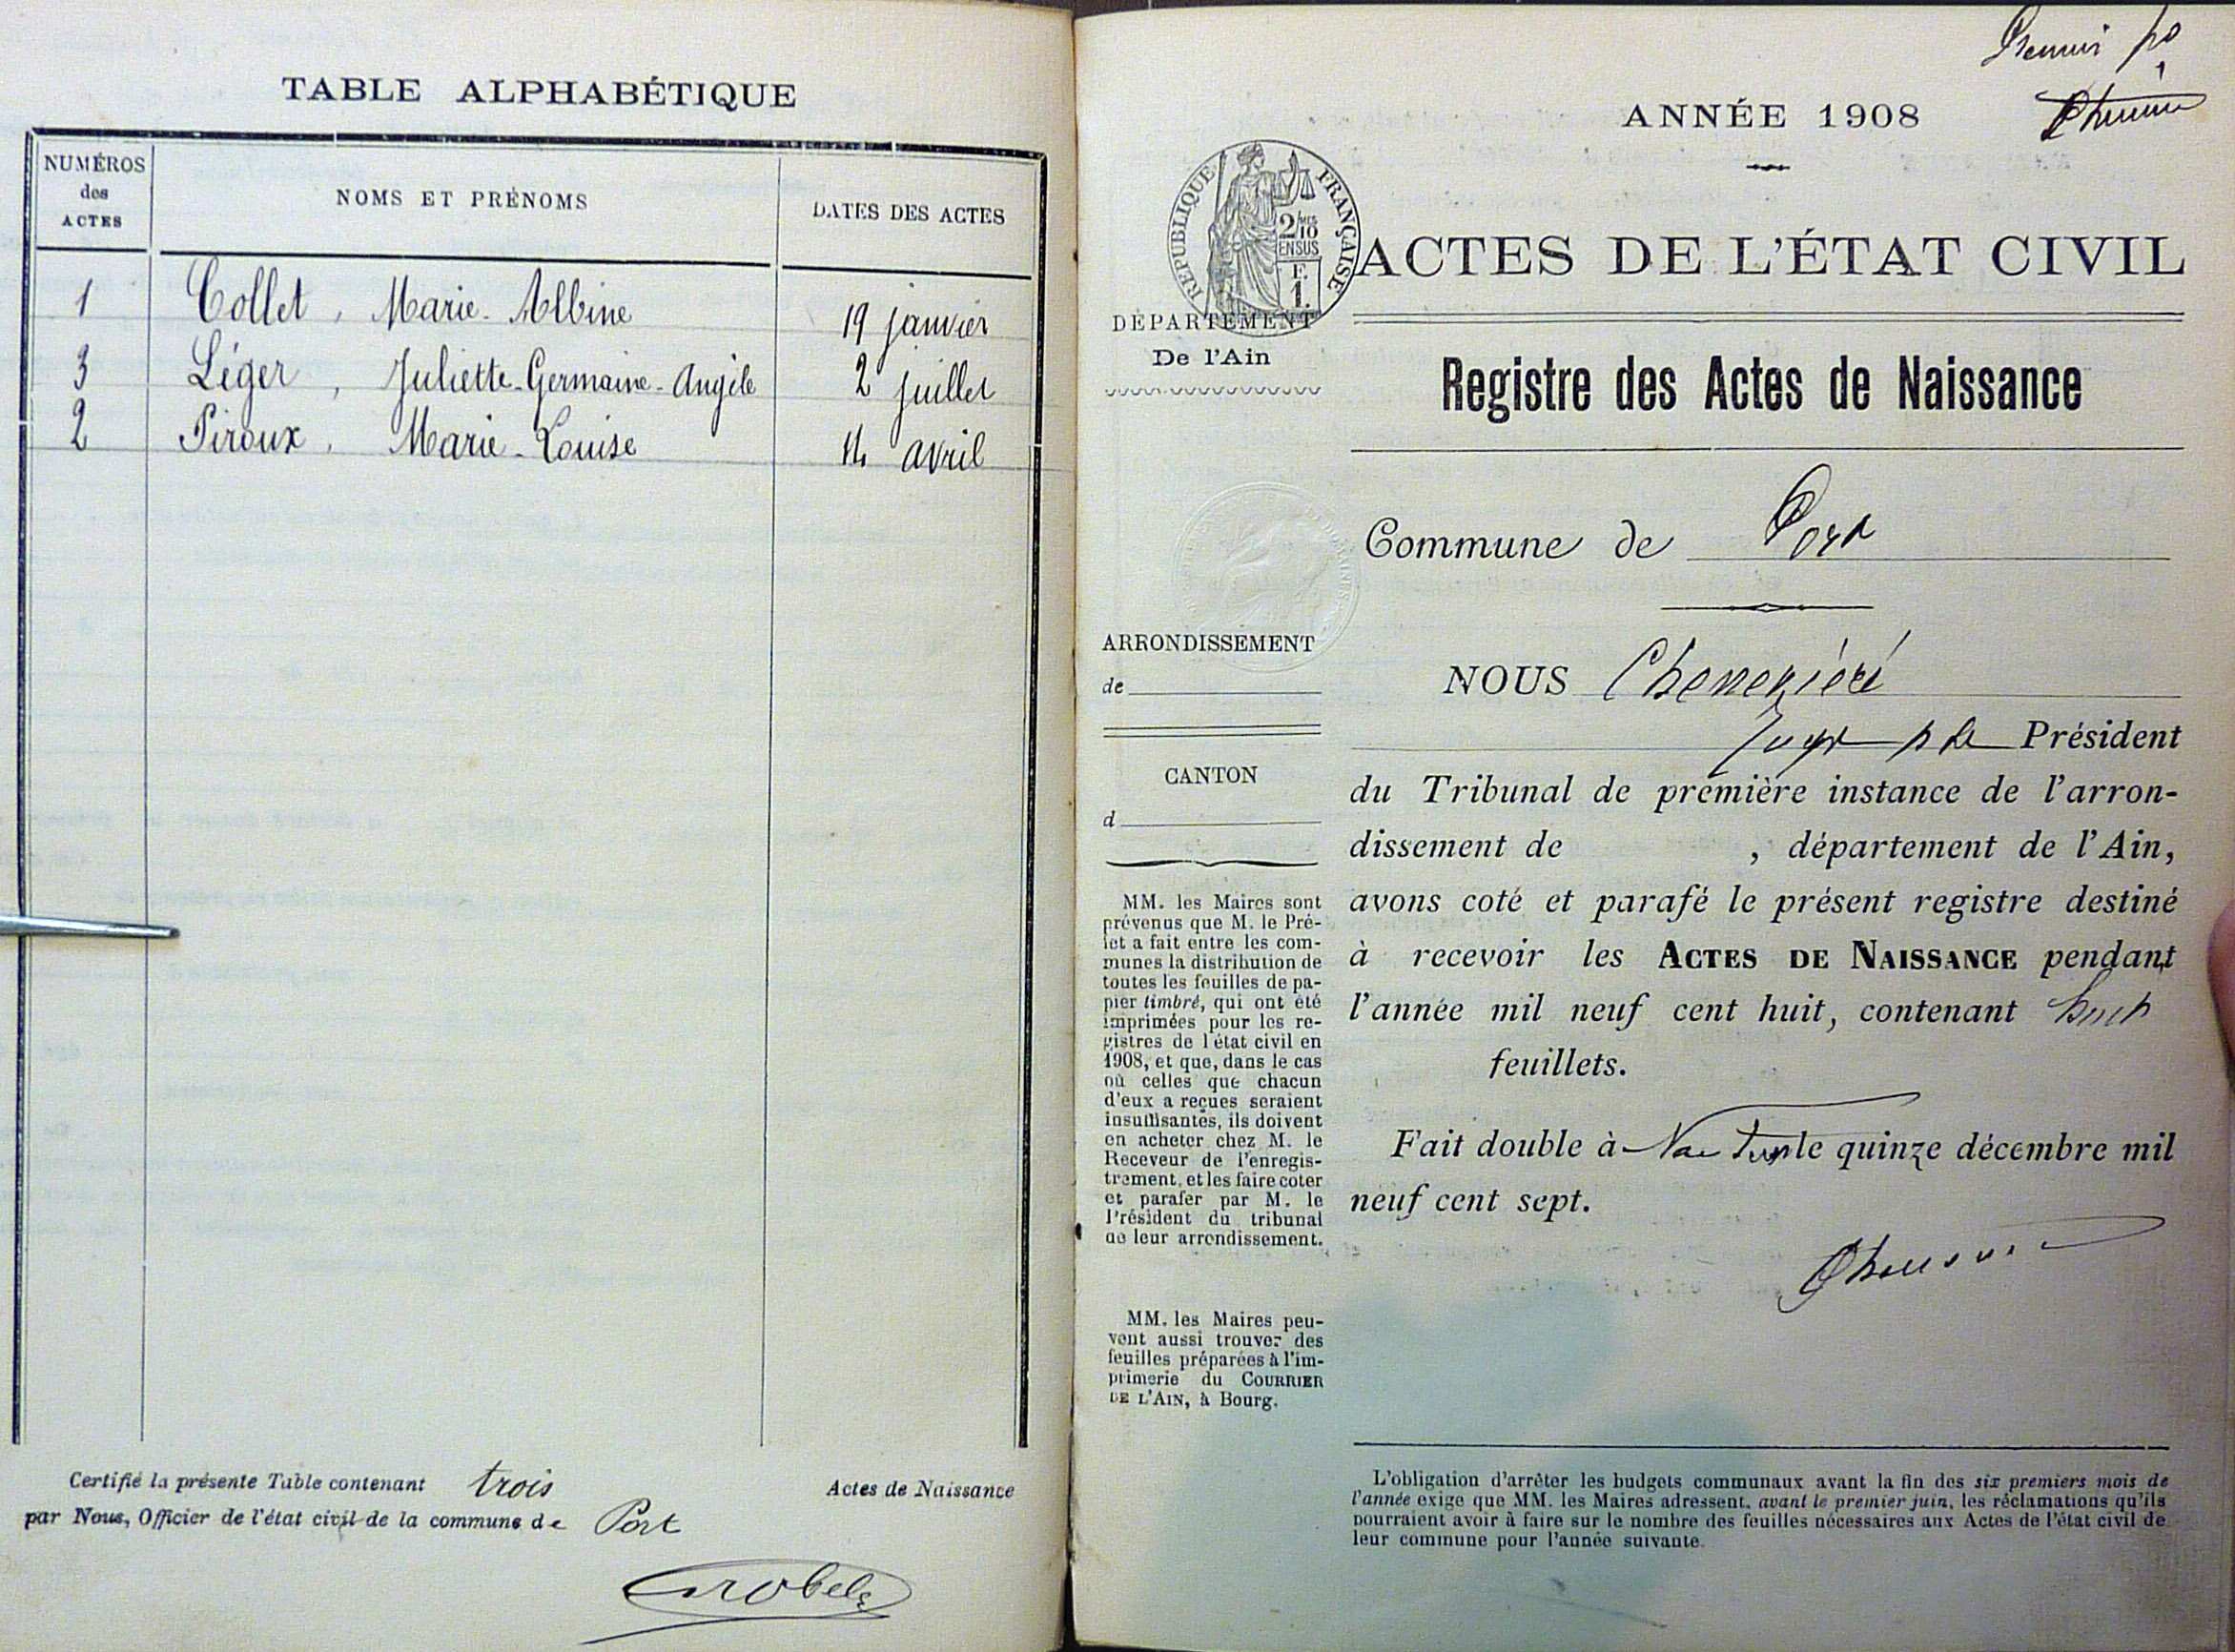 TABLE ALPHABÉTIQUE
NUMÉROS
des
ACTES
NOMS ET PRÉNOMS
DATES DES ACTES
1 Collet, Marie-Albine 19 janvier
3 Léger, Juliette-Germaine-Angèle 2 juillet
2 Piroux, Marie-Louise 14 avril
Certifié la présente Table contenant trois Actes de Naissance
par Nous, Officier de l'état civil de la commune de Port
ANNÉE 1908
RÉPUBLIQUE FRANÇAISE
2/10
EN SUS
F.
1.
ACTES DE L'ÉTAT CIVIL
DÉPARTEMENT
De l'Ain
Registre des Actes de Naissance
Commune de Port
ARRONDISSEMENT
de
CANTON
d
MM. les Maires sont
prévenus que M. le Pré-
fet a fait entre les com-
munes la distribution de
toutes les feuilles de pa-
pier timbré, qui ont été
imprimées pour les re-
gistres de l'état civil en
1908, et que, dans le cas
où celles que chacun
d'eux a reçues seraient
insuffisantes, ils doivent
en acheter chez M. le
Receveur de l'enregis-
trement, et les faire coter
et parafer par M. le
Président du tribunal
de leur arrondissement.
MM. les Maires peu-
vent aussi trouver des
feuilles préparées à l'im-
primerie du COURRIER
DE L'AIN, à Bourg.
NOUS
Juge Président
du Tribunal de première instance de l'arron-
dissement de , département de l'Ain,
avons coté et parafé le présent registre destiné
à recevoir les ACTES DE NAISSANCE pendant
l'année mil neuf cent huit, contenant huit
feuillets.
Fait double à Nantua le quinze décembre mil
neuf cent sept.
L'obligation d'arrêter les budgets communaux avant la fin des six premiers mois de
l'année exige que MM. les Maires adressent, avant le premier juin, les réclamations qu'ils
pourraient avoir à faire sur le nombre des feuilles nécessaires aux Actes de l'état civil de
leur commune pour l'année suivante.